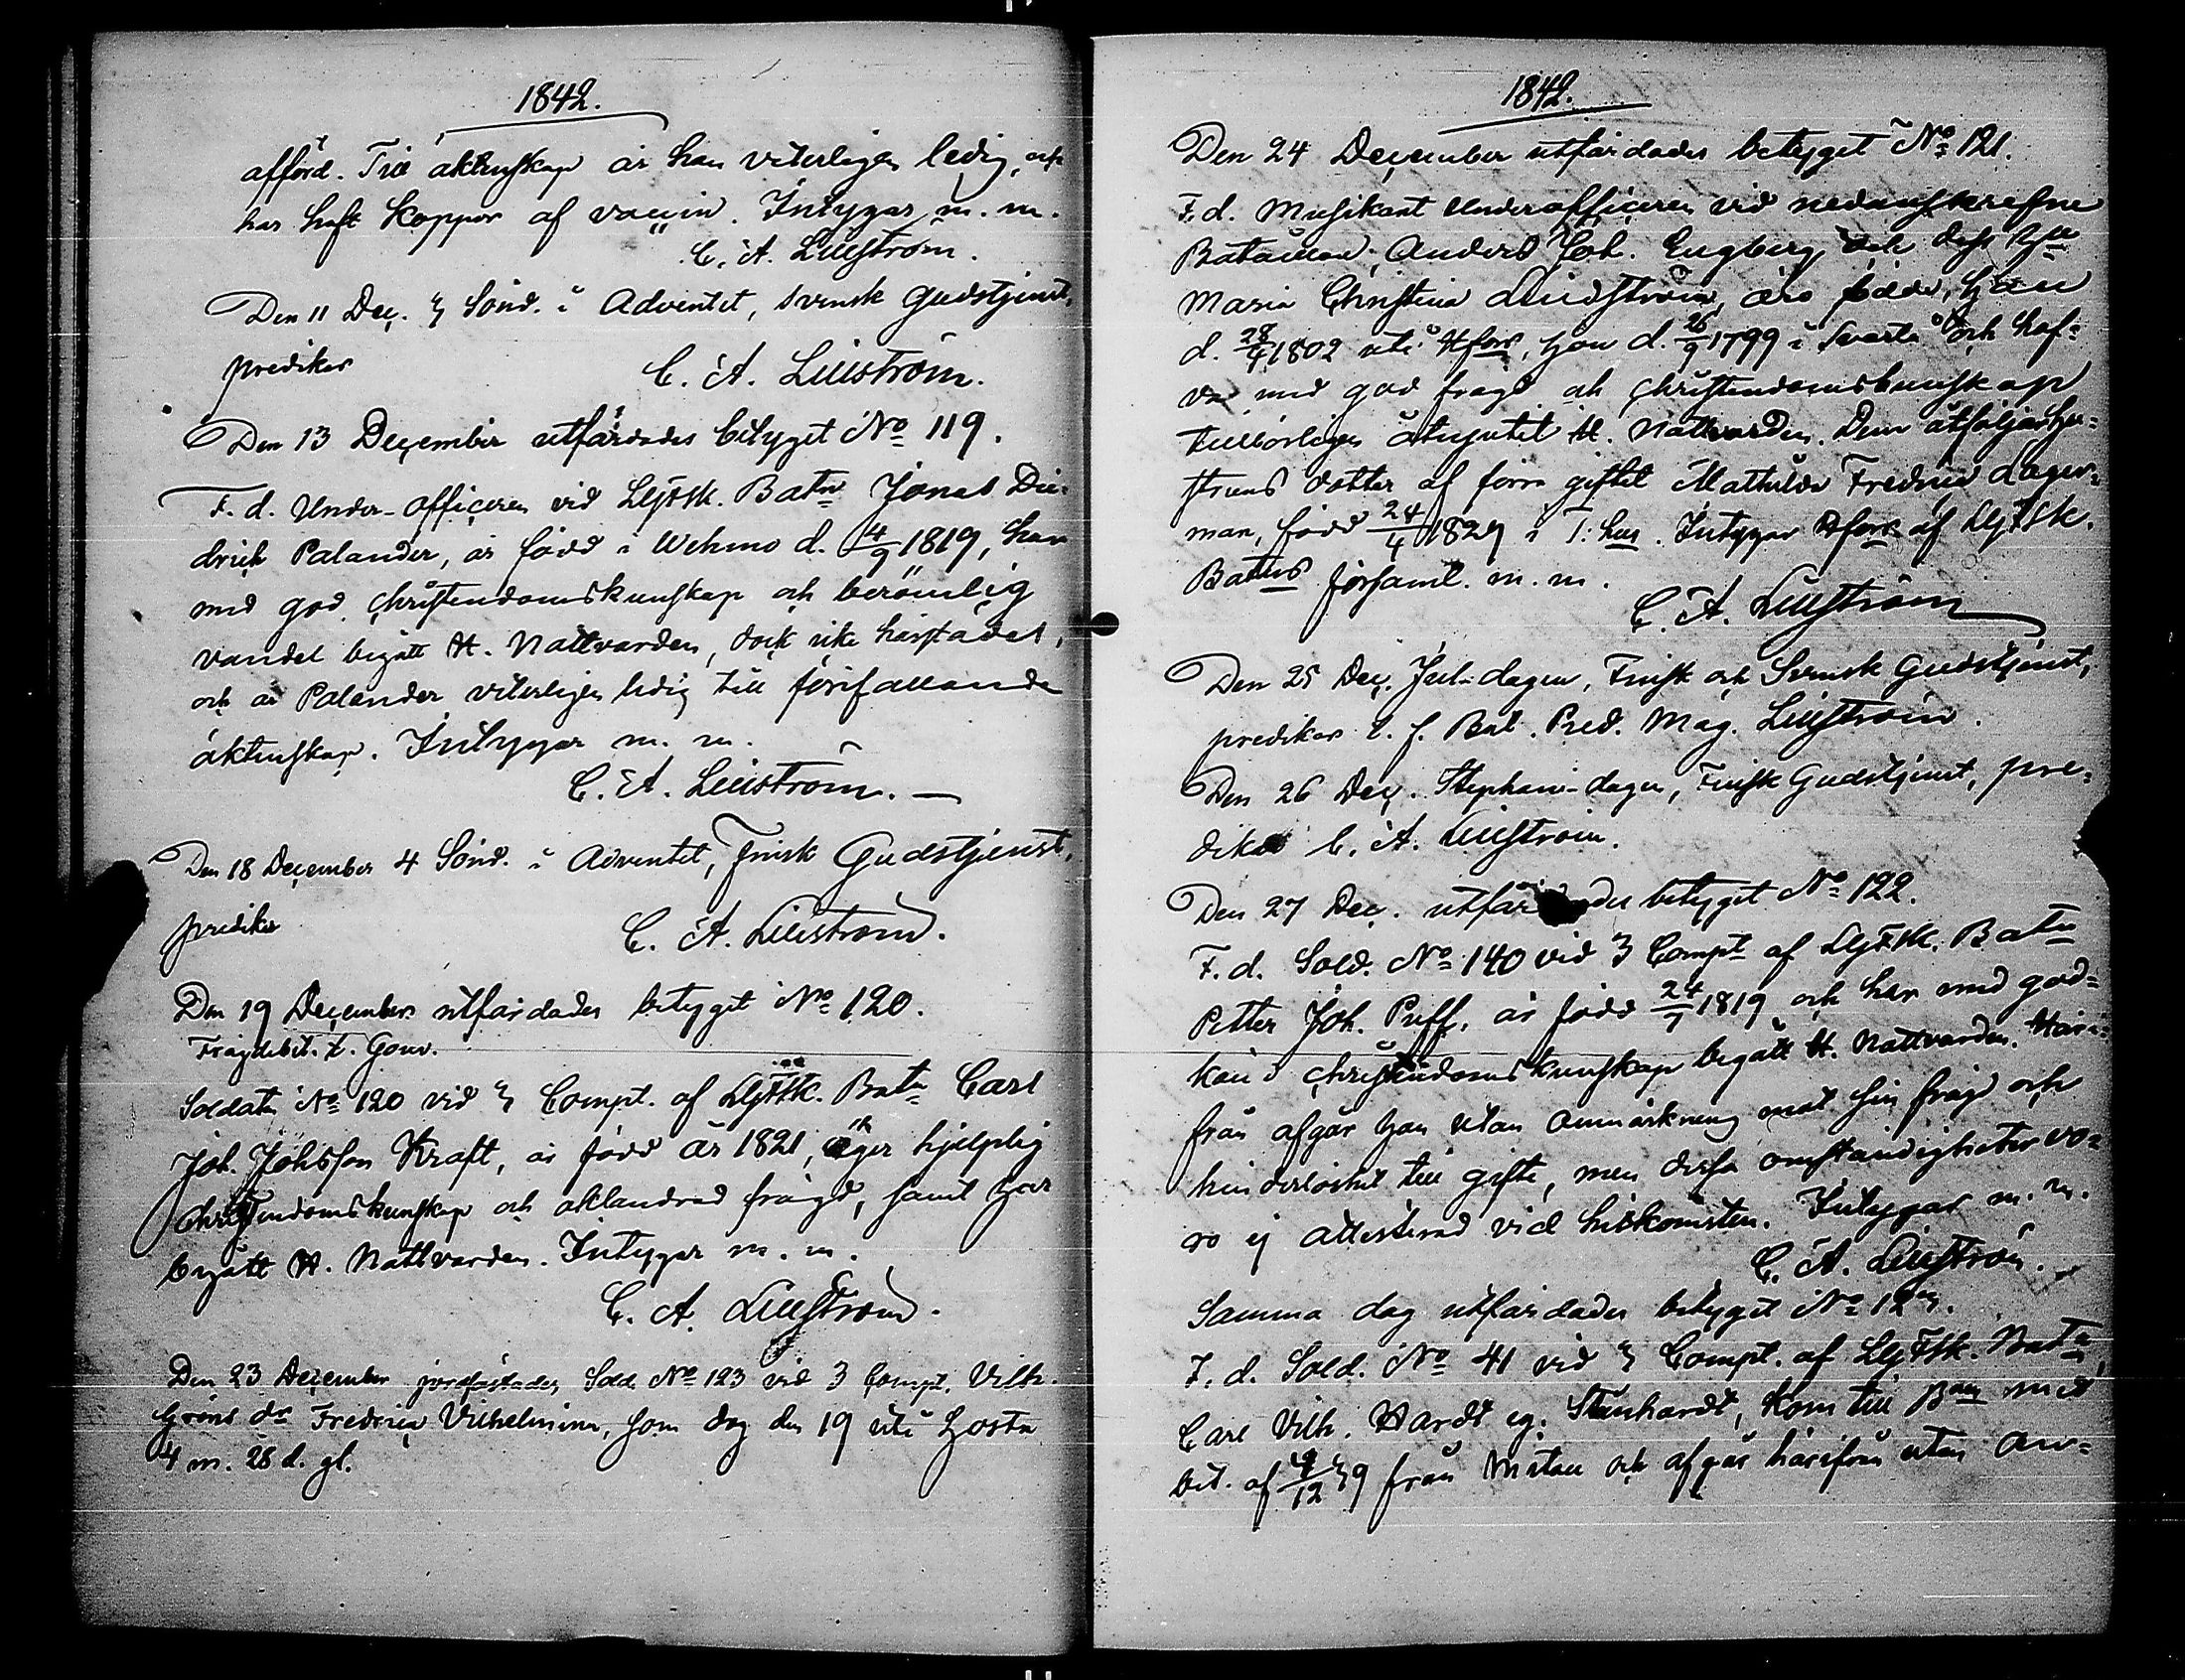 1842.
afförd. Till äktenskap är han veterligen ledig, och
har haft Koppor af vaccin. Intygar m. m.
C. A. Liliström.
Den 11 Dec. 3 Sönd. i Adventet, svensk Gudstjenst,
predikar
C. A. Liliström.
Den 13 December utfärdades betyget No 119.
F. d. Under-officeren vid LgFSk. Batn Jonas Die-
drich Palander, är född i Wehmo d. 4/9 1819, har
med god Christendomskunskap och berömlig
vandel begått H. Nattvarden, dock icke härstädes,
och är Palander veterligen ledig till förefallande
äktenskap. Intygar m. m.
C. A. Liliström. —
Den 18 December 4 Sönd. i Adventet, finsk Gudstjenst,
predikar
C. A. Liliström.
Den 19 December utfärdades betyget No 120.
Frägdebet. t. Gouv.
Soldaten No 120 vid 3 Compt. af LgFSk. Batn Carl
Joh. Johsson Kraft, är född år 1821, äger hjelplig
Christendomskunskap och oklandrad frägd, samt har
begått H. Nattvarden. Intygar m. m.
C. A. Liliström.
Den 23 December jordfästades Sold. No 123 vid 3 Compt. Vilh.
Gröns dr Fredrica Vilhelmina, som dog den 19 uti hosta
4 m. 28 d. gl.
1842.
Den 24 December utfärdades betyget No 121.
F. d. Musikant Underofficeren vid nedanskrefne
Bataillon, Anders Joh. Engberg och dess Hu
Maria Christina Lindström, äro födde, Han
d. 28/4 1802 uti Hfors, hon d. 26/9 1799 i Svartå och haf-
va med god frägd och Christendomskunskap
tillbörligen åtnjutit H. Nattvarden. Dem åtföljer Hu-
struns dotter af förra giftet Mathilda Fredrica Lager-
man, född 24/4 1829 i T:hus. Intygar Hfors af LgFSk.
Batns församl. m. m.
C. A. Liliström
Den 25 Dec. Jul-dagen, Finsk och Svensk Gudstjenst,
predikar t. f. Bat. Pred. Mag. Liliström.
Den 26 Dec. Stephani-dagen, Finsk Gudstjenst, pre-
dikar C. A. Liliström.
Den 27 Dec. utfärdades betyget No 122.
F. d. Sold. No 140 vid 3 Compt af LgFSk. Batn
Petter Joh. Puff, är född 24/7 1819 och har med god-
känd Christendomskunskap begått H. Nattvarden. Häri-
från afgår han utan anmärkning mot sin frägd och
hinderlöshet till gifte, men dessa omständigheter vo-
ro ej attesterad vid hitkomsten. Intygar m. m.
C. A. Liliström.
Samma dag utfärdades betyget No 123.
F. d. Sold. No 41 vid 3 Compt. af LgFSk. Batn,
Carl Vilh. Hardt eg. Stenhardt, kom till Bon med
bet. af 9/12 39 från och afgår härifrån utan an-